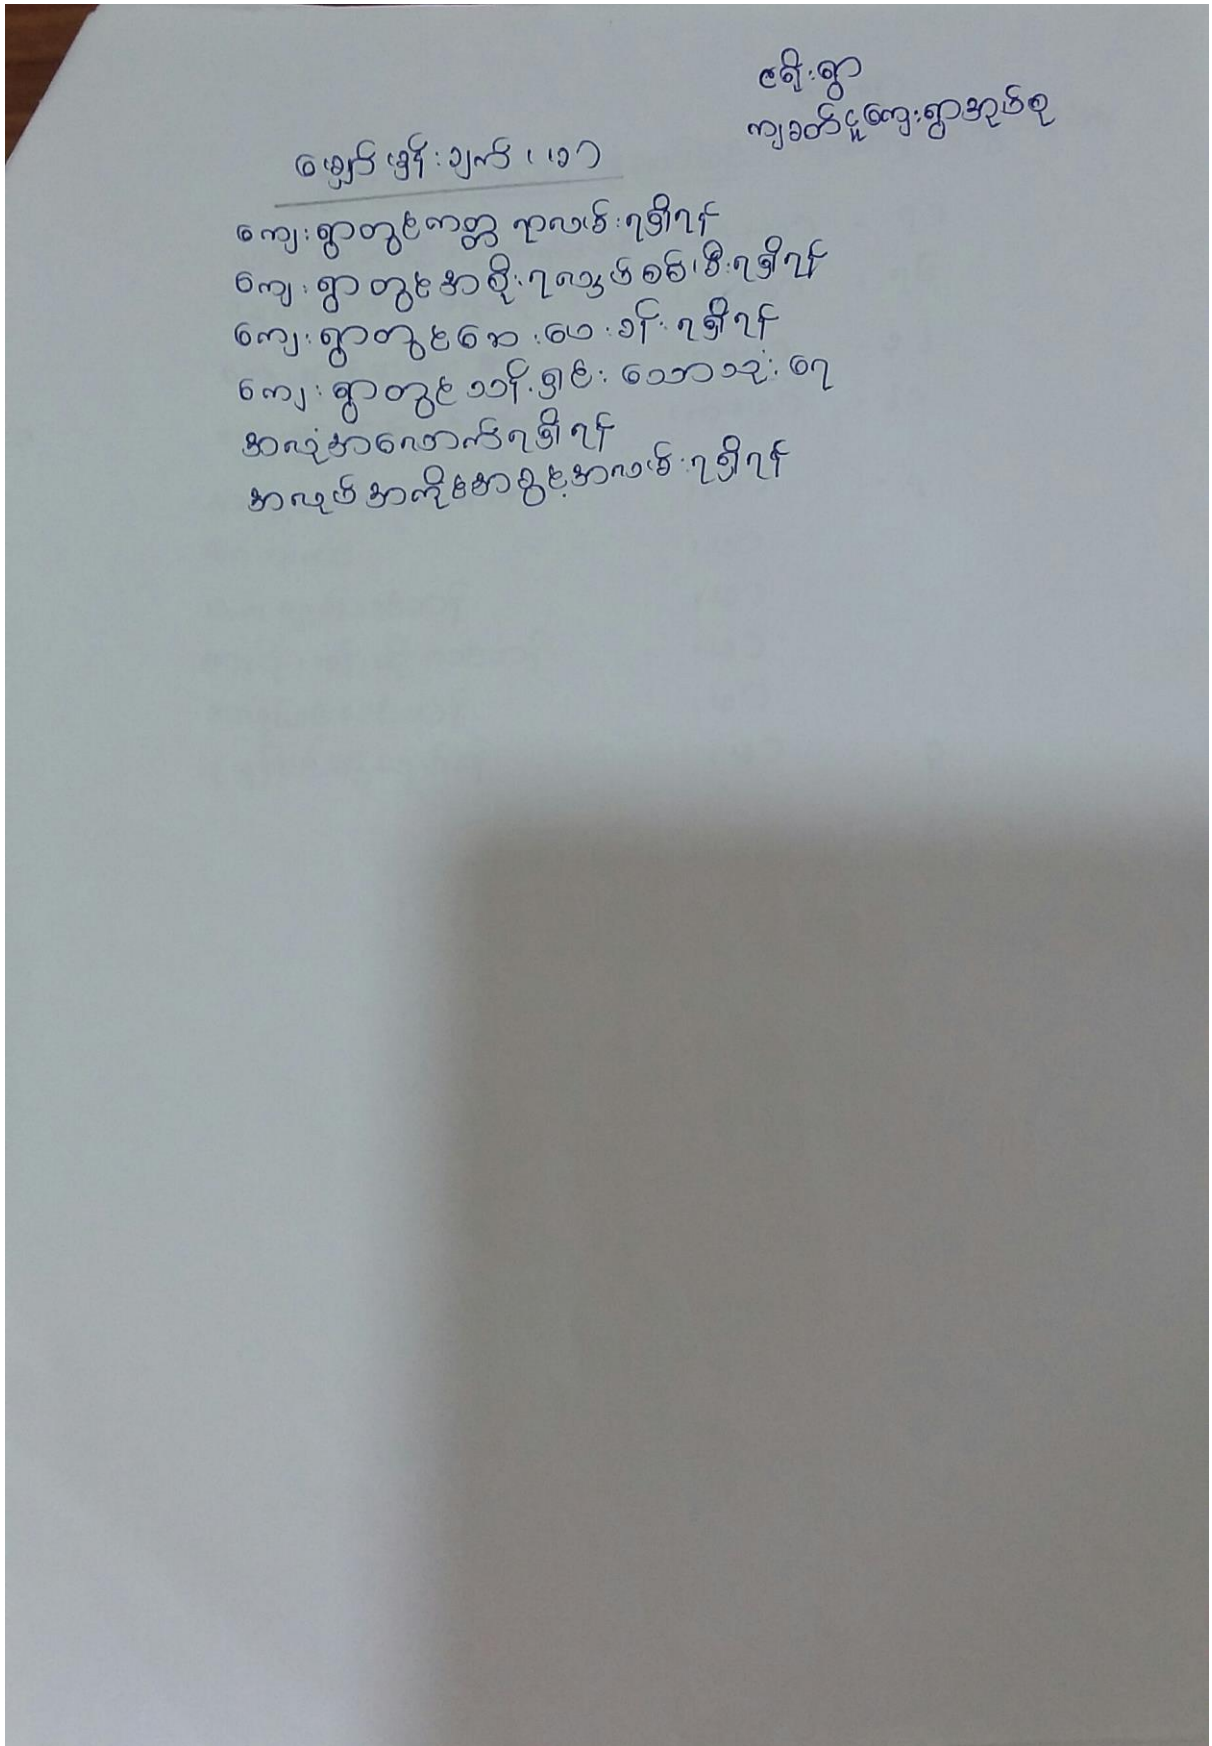 ဇရိုးရွာ
ကျခတ်ငူကျေးရွာအုပ်စု
မျှော်မှန်းချက်(၊၁၊)
ကျေးရွာတွင်ကတ္တရာလမ်းရရှိရန်
ကျေးရွာတွင်အစိုးရလျှပ်စစ်မီးရရှိရန်
ကျေးရွာတွင်ဆေးပေးခန်းရရှိရန်
ကျေးရွာတွင်သန့်ရှင်းသောသုံးရေ
အလုံအလောက်ရရှိရန်
အလုပ်အကိုင်အခွင့်အလမ်းရရှိရန်